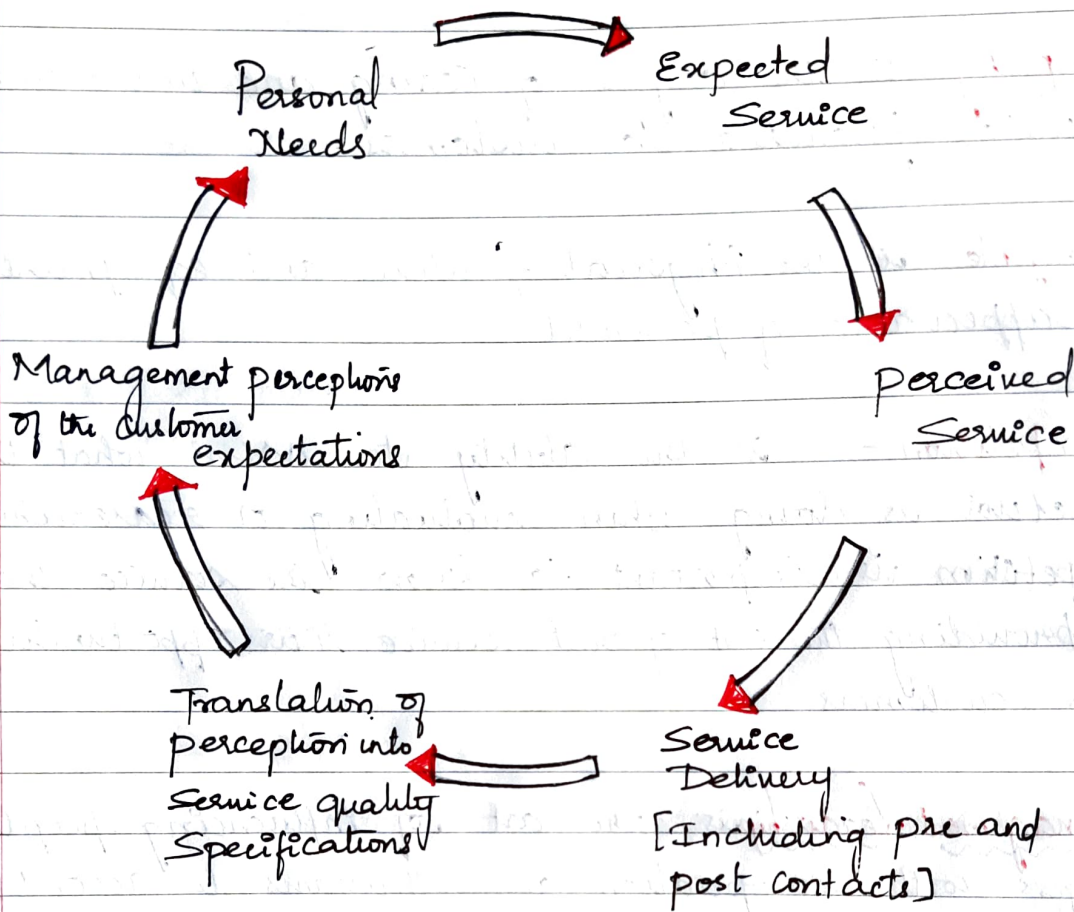 Personal
Needs
Expected
Service
Perceived
Service
Service
Delivery
[Including pre and
post contacts]
Translation of
perception into
Service quality
Specifications
Management perceptions
of the customer
expectations